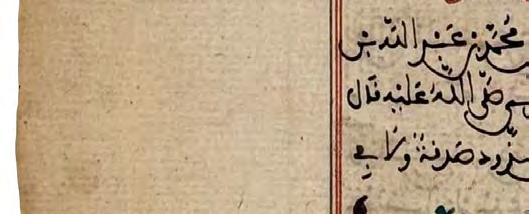 محمد بن عبد الله بن
صلى الله عليه قال
ذود صدقة ولا في